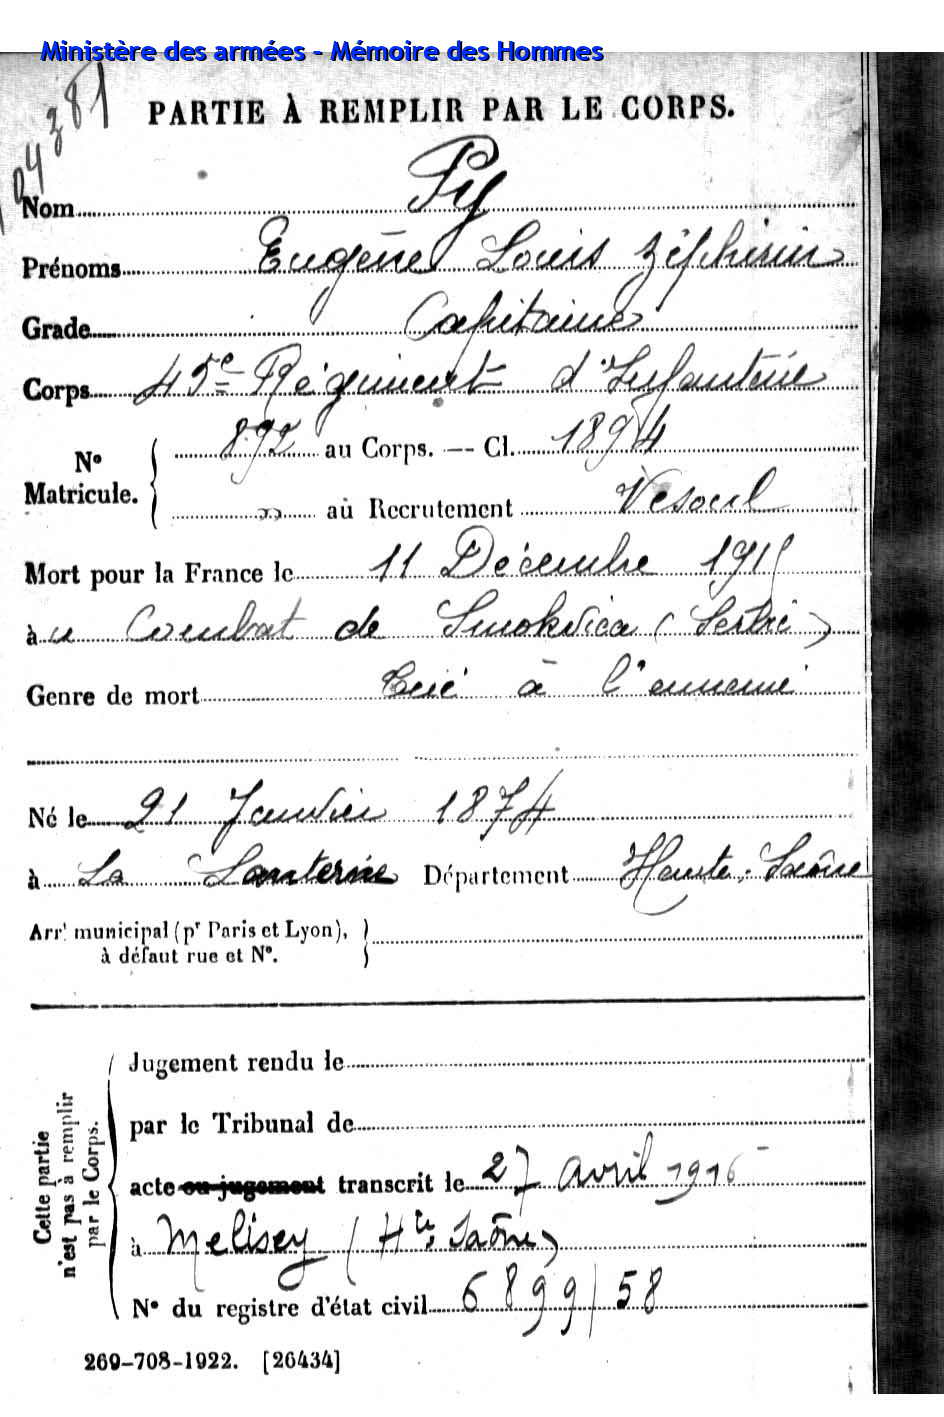 Ministère des armées - Mémoire des Hommes
PARTIE À REMPLIR PAR LE CORPS.
Nom Py
Prénoms Eugène Louis Zéphirin
Grade Capitaine
Corps 45e Régiment d'Infanterie
N° Matricule. 892 au Corps. — Cl. 1894
" au Recrutement Vesoul
Mort pour la France le 11 Décembre 1915
à u Combat de Smokvica (Serbie)
Genre de mort Tué à l'ennemi
Né le 21 Janvier 1874
à La Lanterne Département Haute-Saône
Arrt municipal (pr Paris et Lyon),
à défaut rue et N°.
Cette partie
n'est pas à remplir
par le Corps.
Jugement rendu le
par le Tribunal de
acte ou jugement transcrit le 27 avril 1916
à Melisey (Hte Saône)
N° du registre d'état civil 6899/58
269-708-1922. [26434]